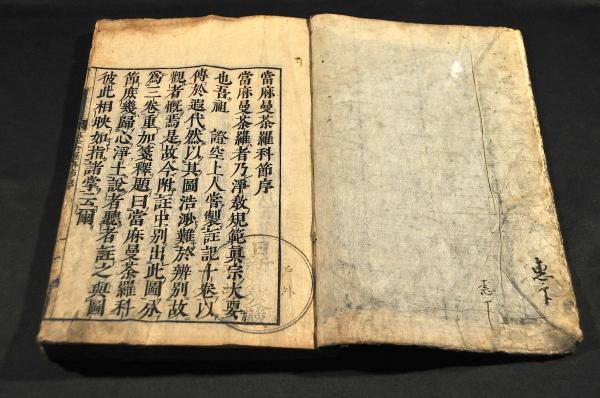 當麻曼荼羅科節序
當麻曼荼羅者乃淨教規範眞宗大要
也吾祖 證空上人嘗製註記十卷以
傳於遐代然以其圖浩渺難於辨別故
觀者慨焉是故今附註中別出此圖分
爲三卷重加箋釋題曰當麻曼荼羅科
節庶幾歸心淨土說者聽者註之與圖
彼此相映如指諸掌云爾
戶外